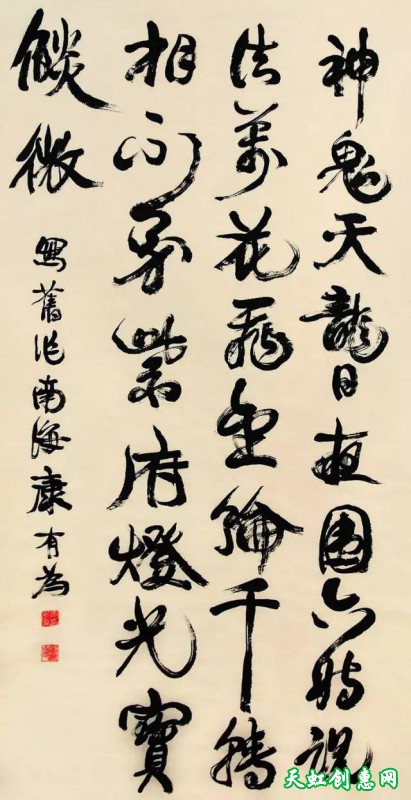 神鬼天龍日夜圍六時說
法萬花飛千轉
相紫府燈光寶
燄微
寫舊作南海康有為
天虹创惠网